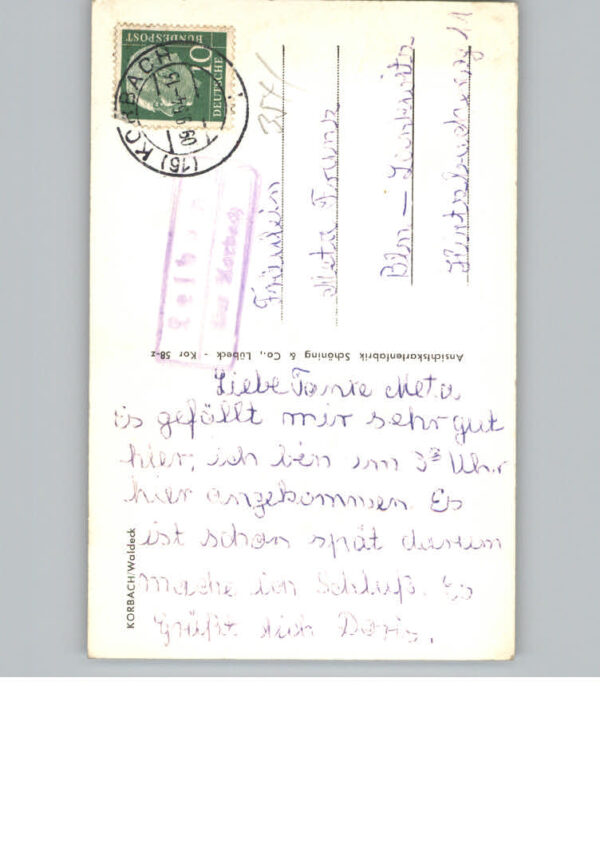 Liebe Tante Meta
Es gefällt mir sehr gut
hier, ich bin um 3 Uhr
hier angekommen. Es
ist schon spät darum
mache ich Schluß. Es
Grüßt dich Doris.
Fräulein
Meta
Bln –
KORBACH/Waldeck
Ansichtskartenfabrik Schöning & Co., Lübeck - Kor 58-z
DEUTSCHE
BUNDESPOST
10
(16) KORBACH
über Korbach